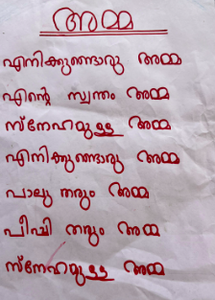 അമ്മ
എനിക്കുണ്ടൊരു അമ്മ
എന്റെ സ്വന്തം അമ്മ
സ്നേഹമുള്ള അമ്മ
എനിക്കുണ്ടൊരു അമ്മ
പാലു തരും അമ്മ
പീച്ചി തരും അമ്മ
സ്നേഹമുള്ള അമ്മ